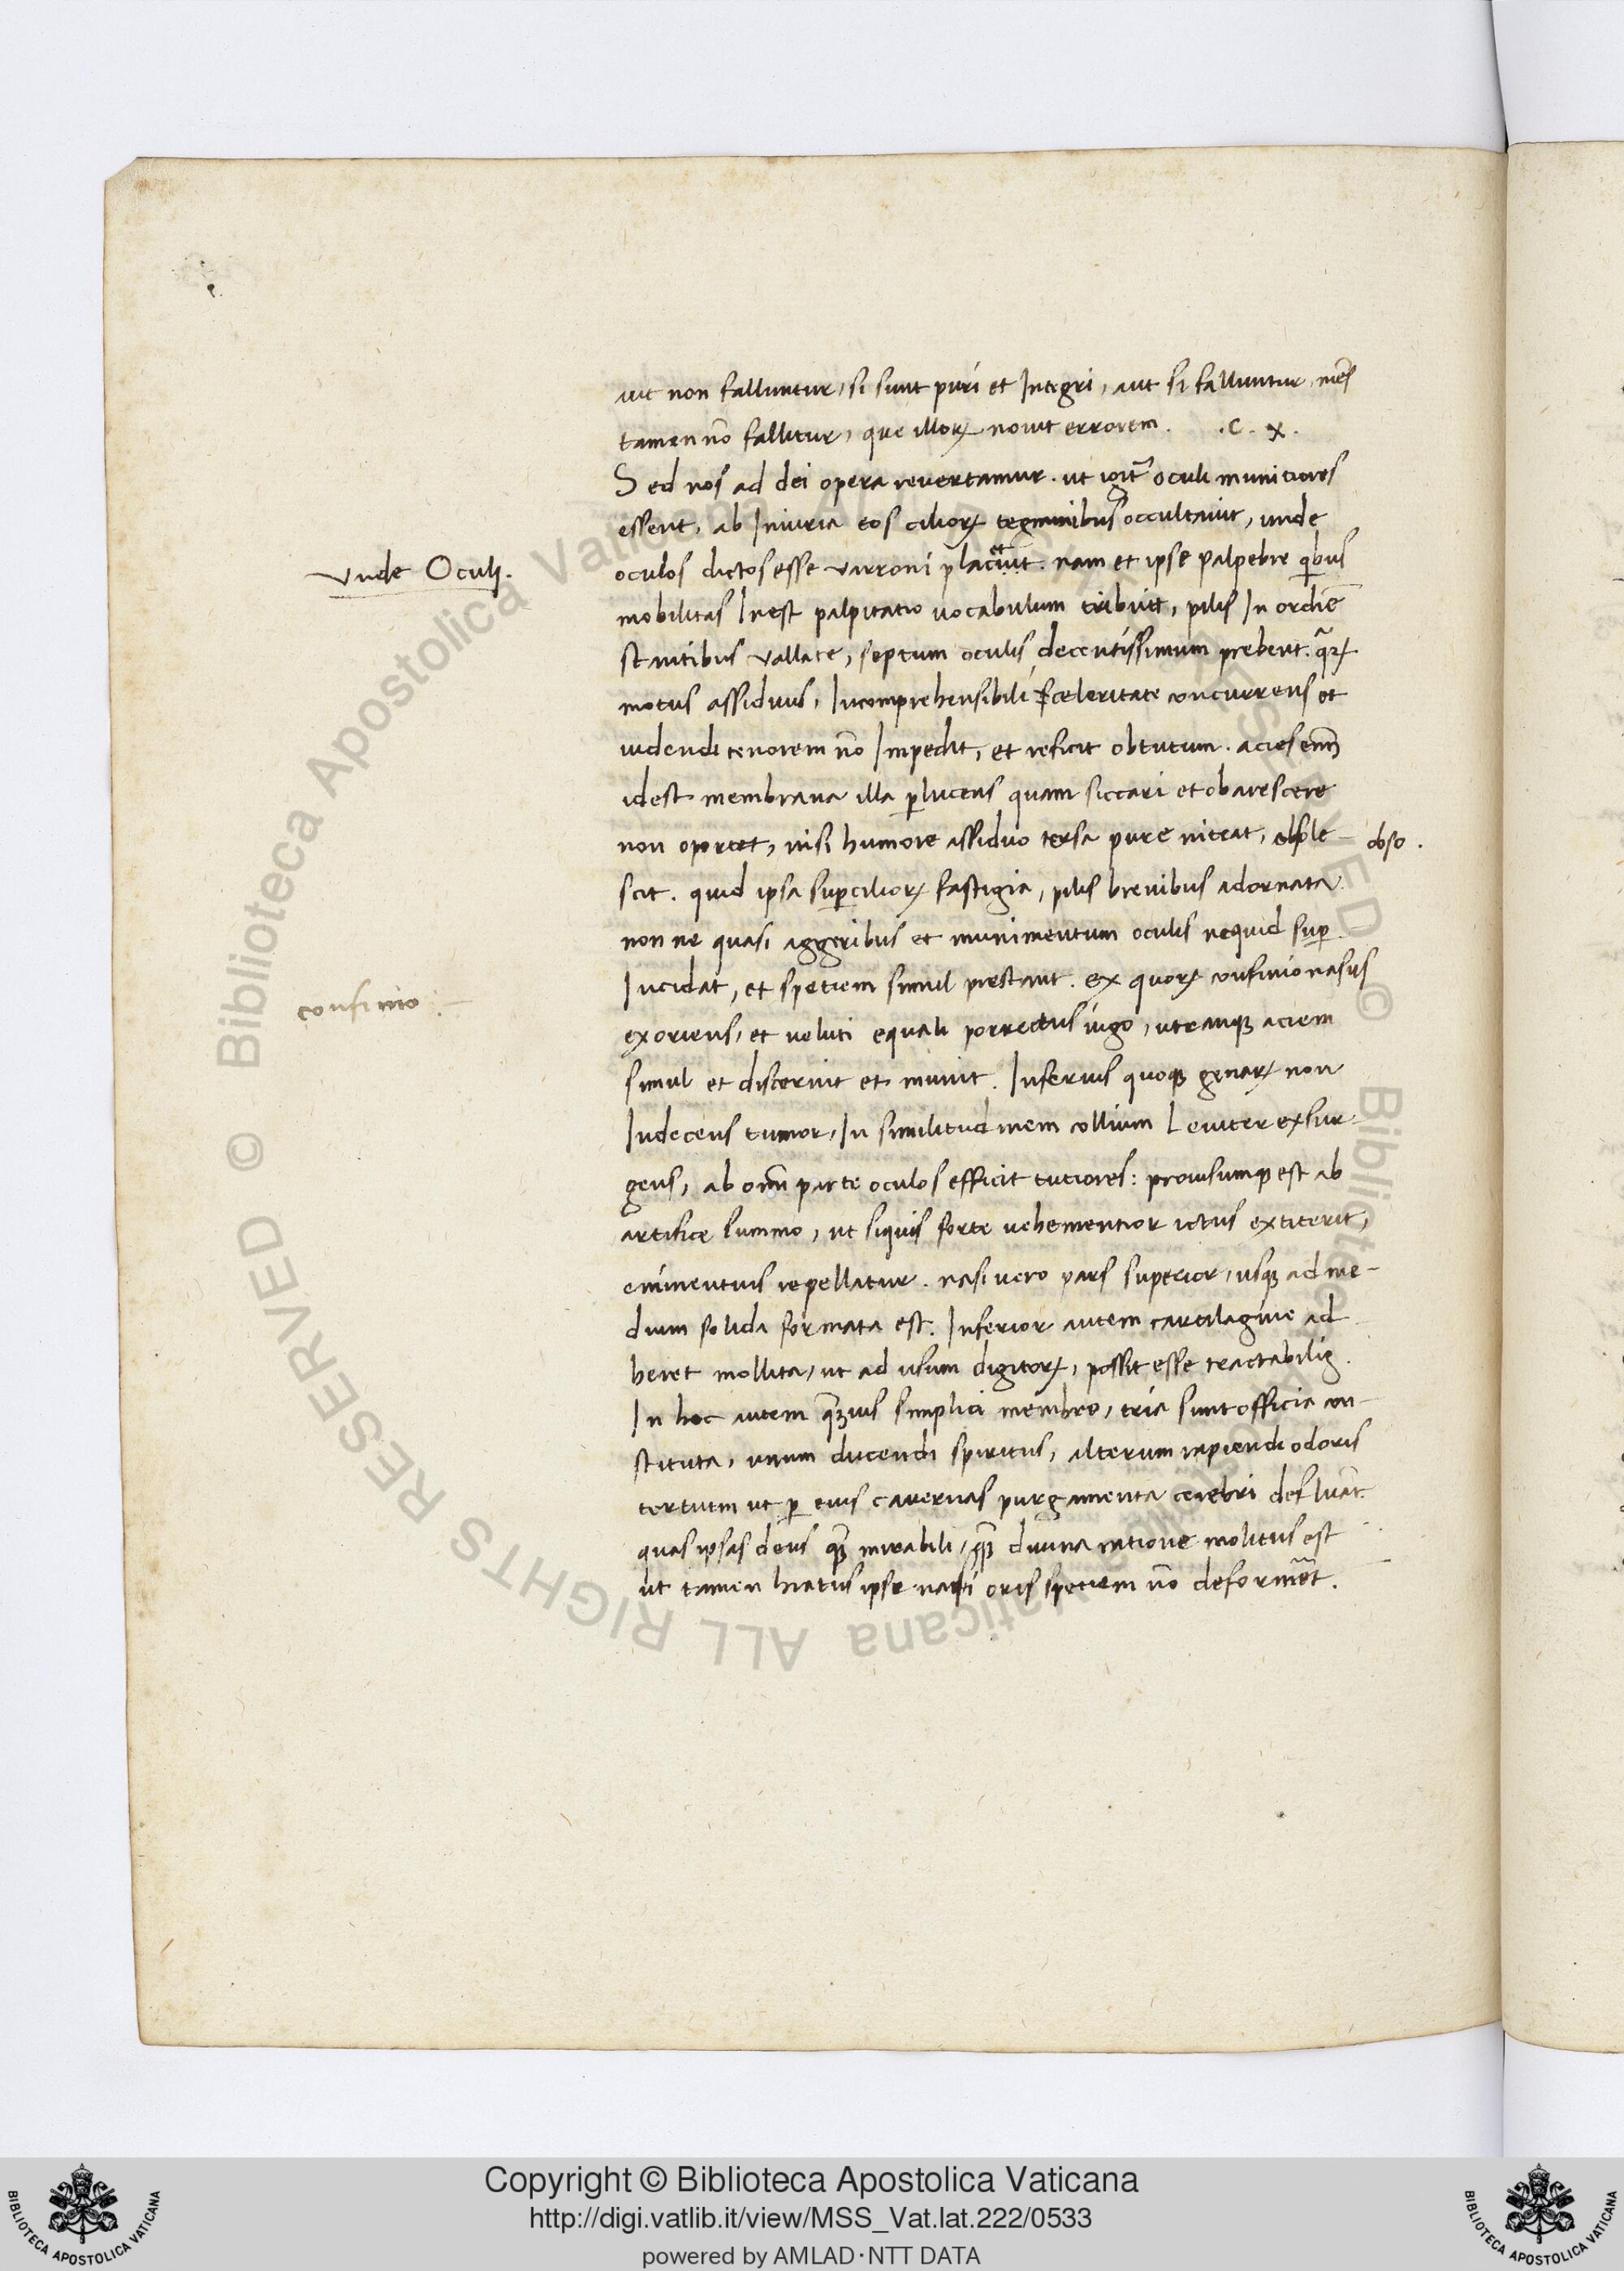 aut non falluntur, si sunt puri et Integri, aut si falluntur, mēs
tamen nō fallitur, que illoꝝ nouit errorem. .C. X.
Sed nos ad dei opera reuertamur. ut oculi munitiores
essent, ab Iniuria eos cilioꝝ tegminibus occultauit, unde
Vnde Oculi.
oculos dictos esse varroni placet. nam et ipse palpebre qͥbus
mobilitas Inest palpitatio uocabulum tribuit, pilis In ordīe
stantibus vallate, septum oculis decentissimum prebent. qͣꝝ
motus assiduus, Incomprehensibili celeritate concurrens et
uidendi tenorem nō Impedit, et reficit obtutum. acies enī
idest membrana illa ꝑlucens quam siccari et obarescere
non oportet, nisi humore assiduo tersa pure niteat, obsole-
obso.
scit. quid ipsa suꝑcilioꝝ fastigia, pilis breuibus adornata
non ne quasi aggeribus et munimentum oculis nequid suꝑ
Incidat, et spetiem simul prestant. ex quoꝝ confinio nasus
confinio
exoriens, et veluti equali porrectus iugo, utranqꝫ aciem
simul et discernit et munit. Inferius quoqꝫ genaꝝ non
Indecens tumor, In similitudinem collium Leuiter exsur-
gens, ab omī parte oculos efficit tutiores: prouisumqꝫ est ab
artifice summo, ut siquis forte uehementior ictus extiterit,
eminentius repellatur. nasi uero pars superior, usqꝫ ad me-
dium solida formata est. Inferior autem cartilagine ad
heret mollita, ut ad usum digitoꝝ, possit esse tractabilis.
In hoc autem qᷓꝫuis simplici membro, tria sunt officia con-
stituta, unum ducendi spiritus, alterum capiendi odoris
tertium ut ꝑ eius cauernas purgamenta cerebri defluāt.
quas ipsas deus qᷓꝫ mirabili, qᷓꝫ diuina ratione molitus est
ut tamen hiatus ipse nasi oris spetiem nō deformāet.
Copyright © Biblioteca Apostolica Vaticana
http://digi.vatlib.it/view/MSS_Vat.lat.222/0533
powered by AMLAD·NTT DATA
BIBLIOTECA APOSTOLICA VATICANA
BIBLIOTECA APOSTOLICA VATICANA
© Biblioteca Apostolica Vaticana ALL RIGHTS RESERVED © Biblioteca Apostolica Vaticana ALL RIGHTS RESERVED